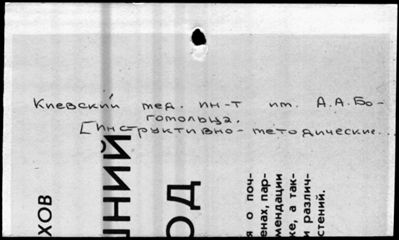 Киевский мед. ин-т им. А.А.Бо-
гомольца.
[Инструктивно-методические...
ХОВ
НИЙ
ОД
я о поч-
енах, пар-
мендации
ке, а так-
и различ-
стений.